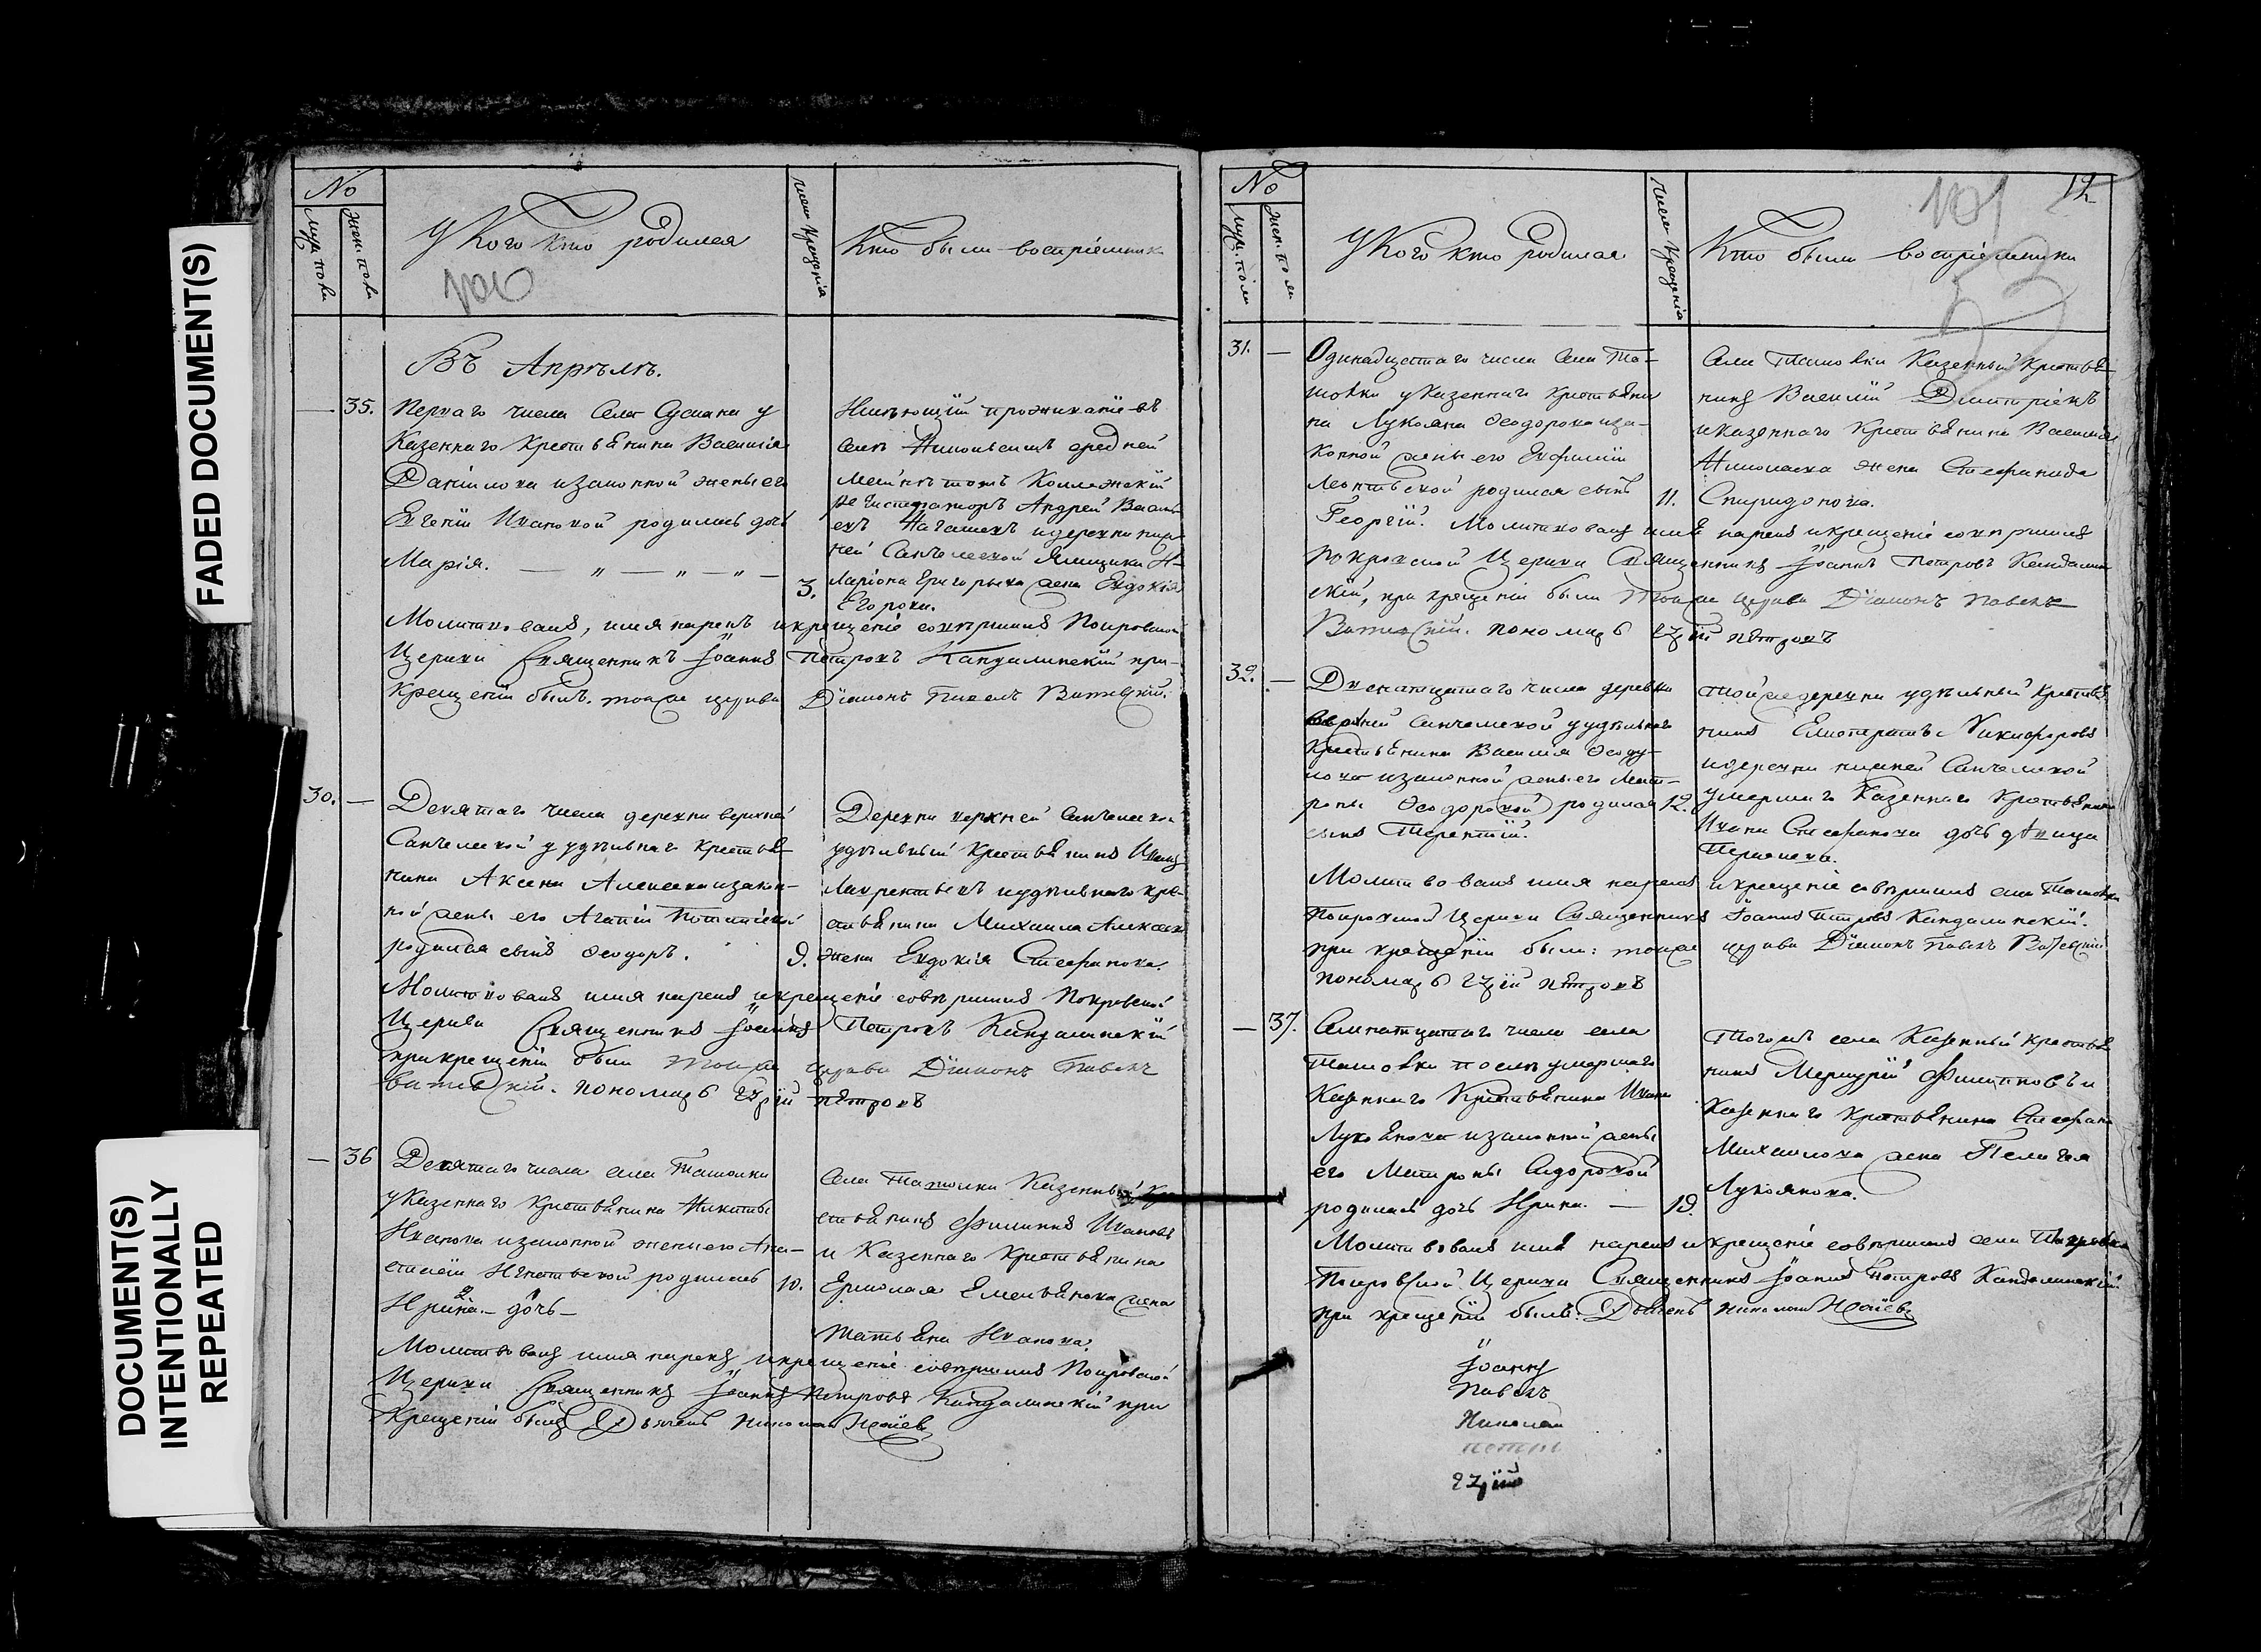 FADED DOCUMENT(S)
DOCUMENT(S)
INTENTIONALLY
REPEATED
№
Муж. пола
Жен. пола
У Кого кто родился
100
Число Крещенія
Кто были воспріемник
Въ Апрѣлѣ.
— 35.
Перваго числа Села Сусканы у
Казеннаго Крестьянина Василія
Данилова изаконной жены его
Евгеніи Ивановой родилась дочь
Марія. — „ — „ — „ —
3.
Имѣющій проживаніе въ
селѣ Никольскомъ
Коллежскій
Регистраторъ Андрей Василь
евъ идеревни ниж
ней Санчелеевой Ямщика И-
ларіона Григорьева жена Евдокія
Егорова.
Молитвовалъ, имя нарекъ и крещеніе совершилъ Покровской
Церкви Священникъ Іоаннъ Петровъ Кандалинскій при
Крещеніи былъ. тояже церкви Діаконъ Павелъ
30. —
Девятаго числа деревни верхней
Санчелеевой у удѣльнаго крестья
нина Аксена Алексеева изакон-
ной жены его Агапіи
родился сынъ Ѳеодоръ.
9.
Деревни верхней Санчелеевой
удѣльный крестьянинъ Иванъ
Лаврентьевъ иудѣльнаго кре-
стьянина Михаила Алексеева
жена Евдокія Стефанова.
Молитвовалъ имя нарекъ и крещеніе совершилъ Покровской
Церкви Священникъ Іоаннъ Петровъ Кандалинскій
при крещеніи были тояже церкви Діаконъ Павелъ
пономарь Петровъ
— 36
Девятаго числа села Ташолки
у Казеннаго Крестьянина Никиты
Иванова изаконной жены его Ана-
стасіи Игнатьевой родилась
Ирина. — дочь —
10.
Села Ташолки Казенный Кре
стьянинъ Филиппъ Ивановъ
и Казеннаго Крестьянина
Ермолая Емельянова жена
Татьяна Иванова.
Молитвовалъ имя нарекъ и крещеніе совершилъ Покровской
Церкви Священникъ Іоаннъ Петровъ Кандалинскій при
Крещеніи былъ Дьячекъ Николай
№
Муж. пола
Жен. пола
У Кого кто родился
Число Крещенія
Кто были воспріемники
101
12
31. —
Одинадцатаго числа села Та-
шолки у казеннаго крестьяни
на Лукояна Ѳеодорова иза-
конной жены его Евфиміи
Леонтьевой родился сынъ
Георгій.
11.
Села Ташолки Казенный Крестья
нинъ Василій Дмитріевъ
иказеннаго Крестьянина Василія
Николаева жена Стефанида
Спиридонова.
Молитвовалъ имя нарекъ и крещеніе совершилъ
Покровской Церкви Священникъ Іоаннъ Петровъ Кандалин
скій, при крещеніи были тояже церкви Діаконъ Павелъ
пономарь Петровъ
32. —
Двенатцатаго числа деревни
верхней Санчелеевой у удѣльнаго
Крестьянина Василія Ѳеоду-
лова изаконной жены его Мат-
роны Ѳеодоровой родился
сынъ Терентій.
12.
Тойже деревни удѣльный Крестья
нинъ Никифоровъ
идеревни нижней Санчелеевой
умершаго Казеннаго Крестьянина
Ивана Стефанова дочь дѣвица
Молитвовалъ имя нарекъ и крещеніе совершилъ села Ташолки
Покровской Церкви Священникъ Іоаннъ Петровъ Кандалинскій.
при крещеніи были: тояже церкви Діаконъ Павелъ
пономарь Петровъ
— 37.
Семнатцатаго числа села
Ташолки послѣ умершаго
Казеннаго Крестьянина Ивана
Лукоянова изаконной жены
его Матроны Сидоровой
родилась дочь Ирина. —
19.
Тогожъ села Казенный крестья
нинъ Меркурій Филипповъ и
Казеннаго крестьянина Стефана
Михайлова жена Пелагея
Лукоянова.
Молитвовалъ имя нарекъ и крещеніе совершилъ села
Покровской Церкви Священникъ Іоаннъ Петровъ Кандалинскій
при крещеніи былъ: Дьячекъ Николай
Іоаннъ
Павелъ
Николай